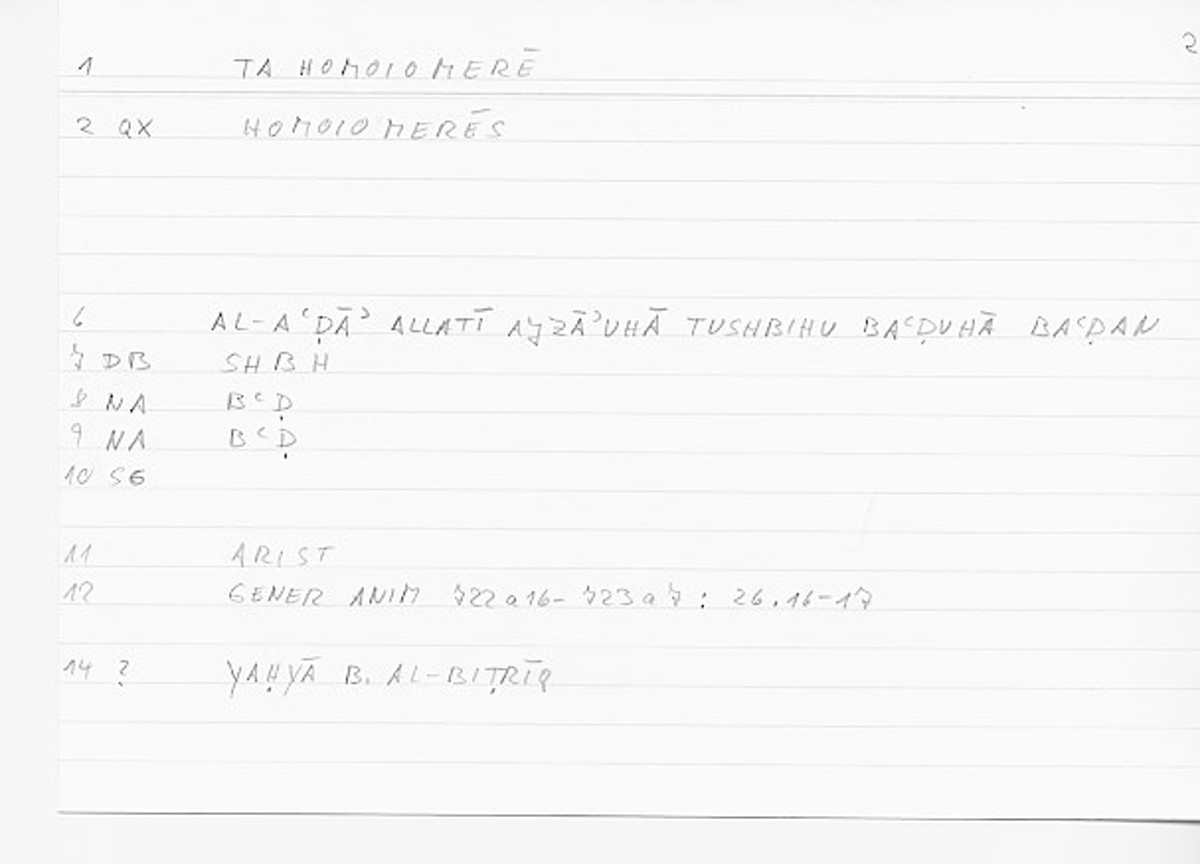 2
1 TA HOMOIOMERĒ
2 QX HOMOIOMERĒS
6 AL-AʿḌĀʾ ALLATĪ AJZĀʾUHĀ TUSHBIHU BAʿḌUHĀ BAʿḌAN
7 DB SHBH
8 NA BʿḌ
9 NA BʿḌ
10 SG
11 ARIST
12 GENER ANIM 722a16-723a7: 26.16-17
14 ? YAḤYĀ B. AL-BIṬRĪQ